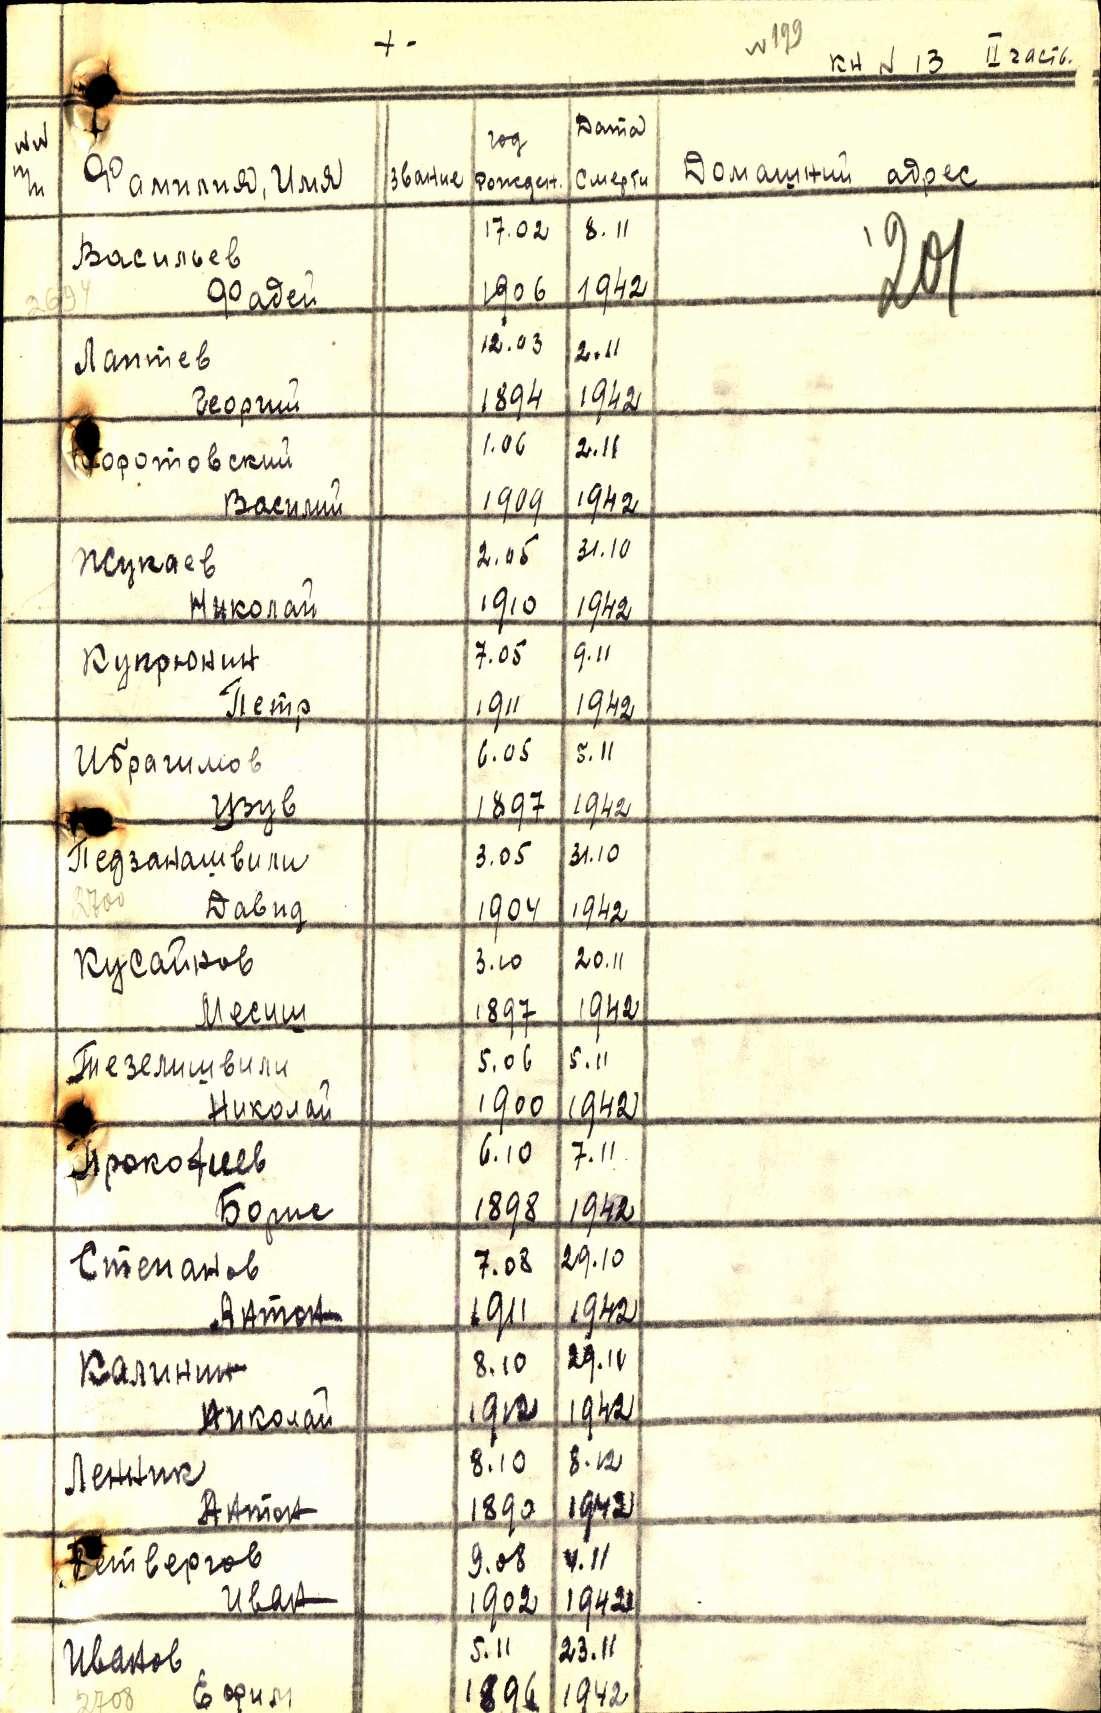 +-
N 199
КН N 13 II часть.
NN п/п Фамилия, Имя Звание год рожден. Дата Смерти Домашний адрес
Васильев 17.02 8.11
2694 Фадей 1906 1942
201
Лаптев 12.03 2.11
Георгий 1894 1942
Коротовский 1.06 2.11
Василий 1909 1942
Жукаев 2.05 31.10
Николай 1910 1942
Купрюнин 7.05 9.11
Петр 1911 1942
Ибрагимов 6.05 5.11
Узув 1897 1942
Педзанашвили 3.05 31.10
2700 Давид 1904 1942
Кусайнов 3.10 20.11
Месиш 1897 1942
Тезелишвили 5.06 5.11
Николай 1900 1942
Прокофиев 6.10 7.11
Борис 1898 1942
Степанов 7.08 29.10
Антон 1911 1942
Калинин 8.10 29.10
Николай 1912 1942
Ленник 8.10 8.12
Антон 1890 1942
Четвергов 9.08 11
Иван 1902 1942
Иванов 5.11 23.11
2708 Ефим 1896 1942